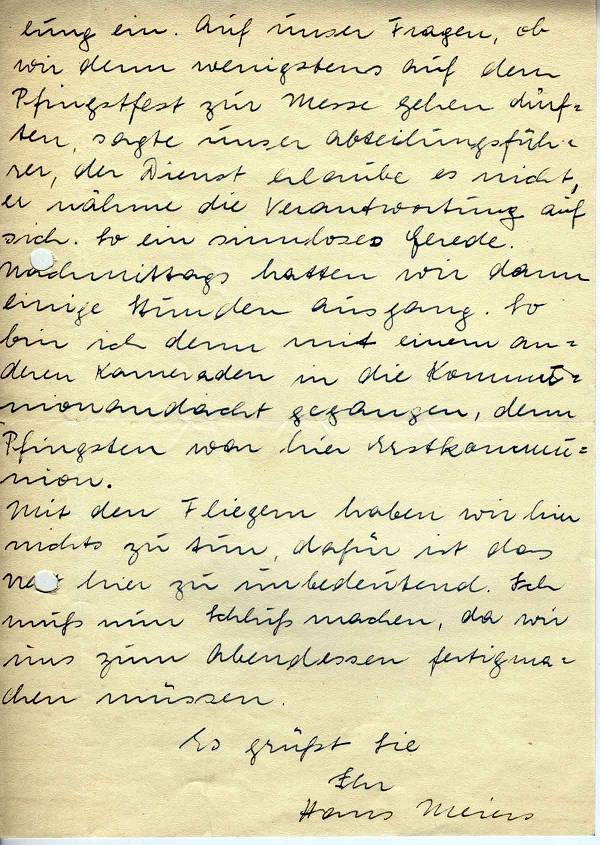 lung ein. Auf unser Fragen, ob
wir denn wenigstens auf dem
Pfingstfest zur Messe gehen dürf-
ten, sagte unser Abteilungsfüh-
rer, der Dienst erlaube es nicht,
er nähme die Verantwortung auf
sich. So ein sinnloses Gerede.
Nachmittags hatten wir dann
einige Stunden Ausgang. So
bin ich denn mit einem an-
deren Kameraden in die Kommu-
nionandacht gegangen, denn
Pfingsten war hier Erstkommu-
nion.
Mit den Fliegern haben wir hier
nichts zu tun, dafür ist das
hier zu unbedeutend. Ich
muß nun Schluß machen, da wir
uns zum Abendessen fertigma-
chen müssen.
Es grüßt Sie
Ihr
Hans Meiers